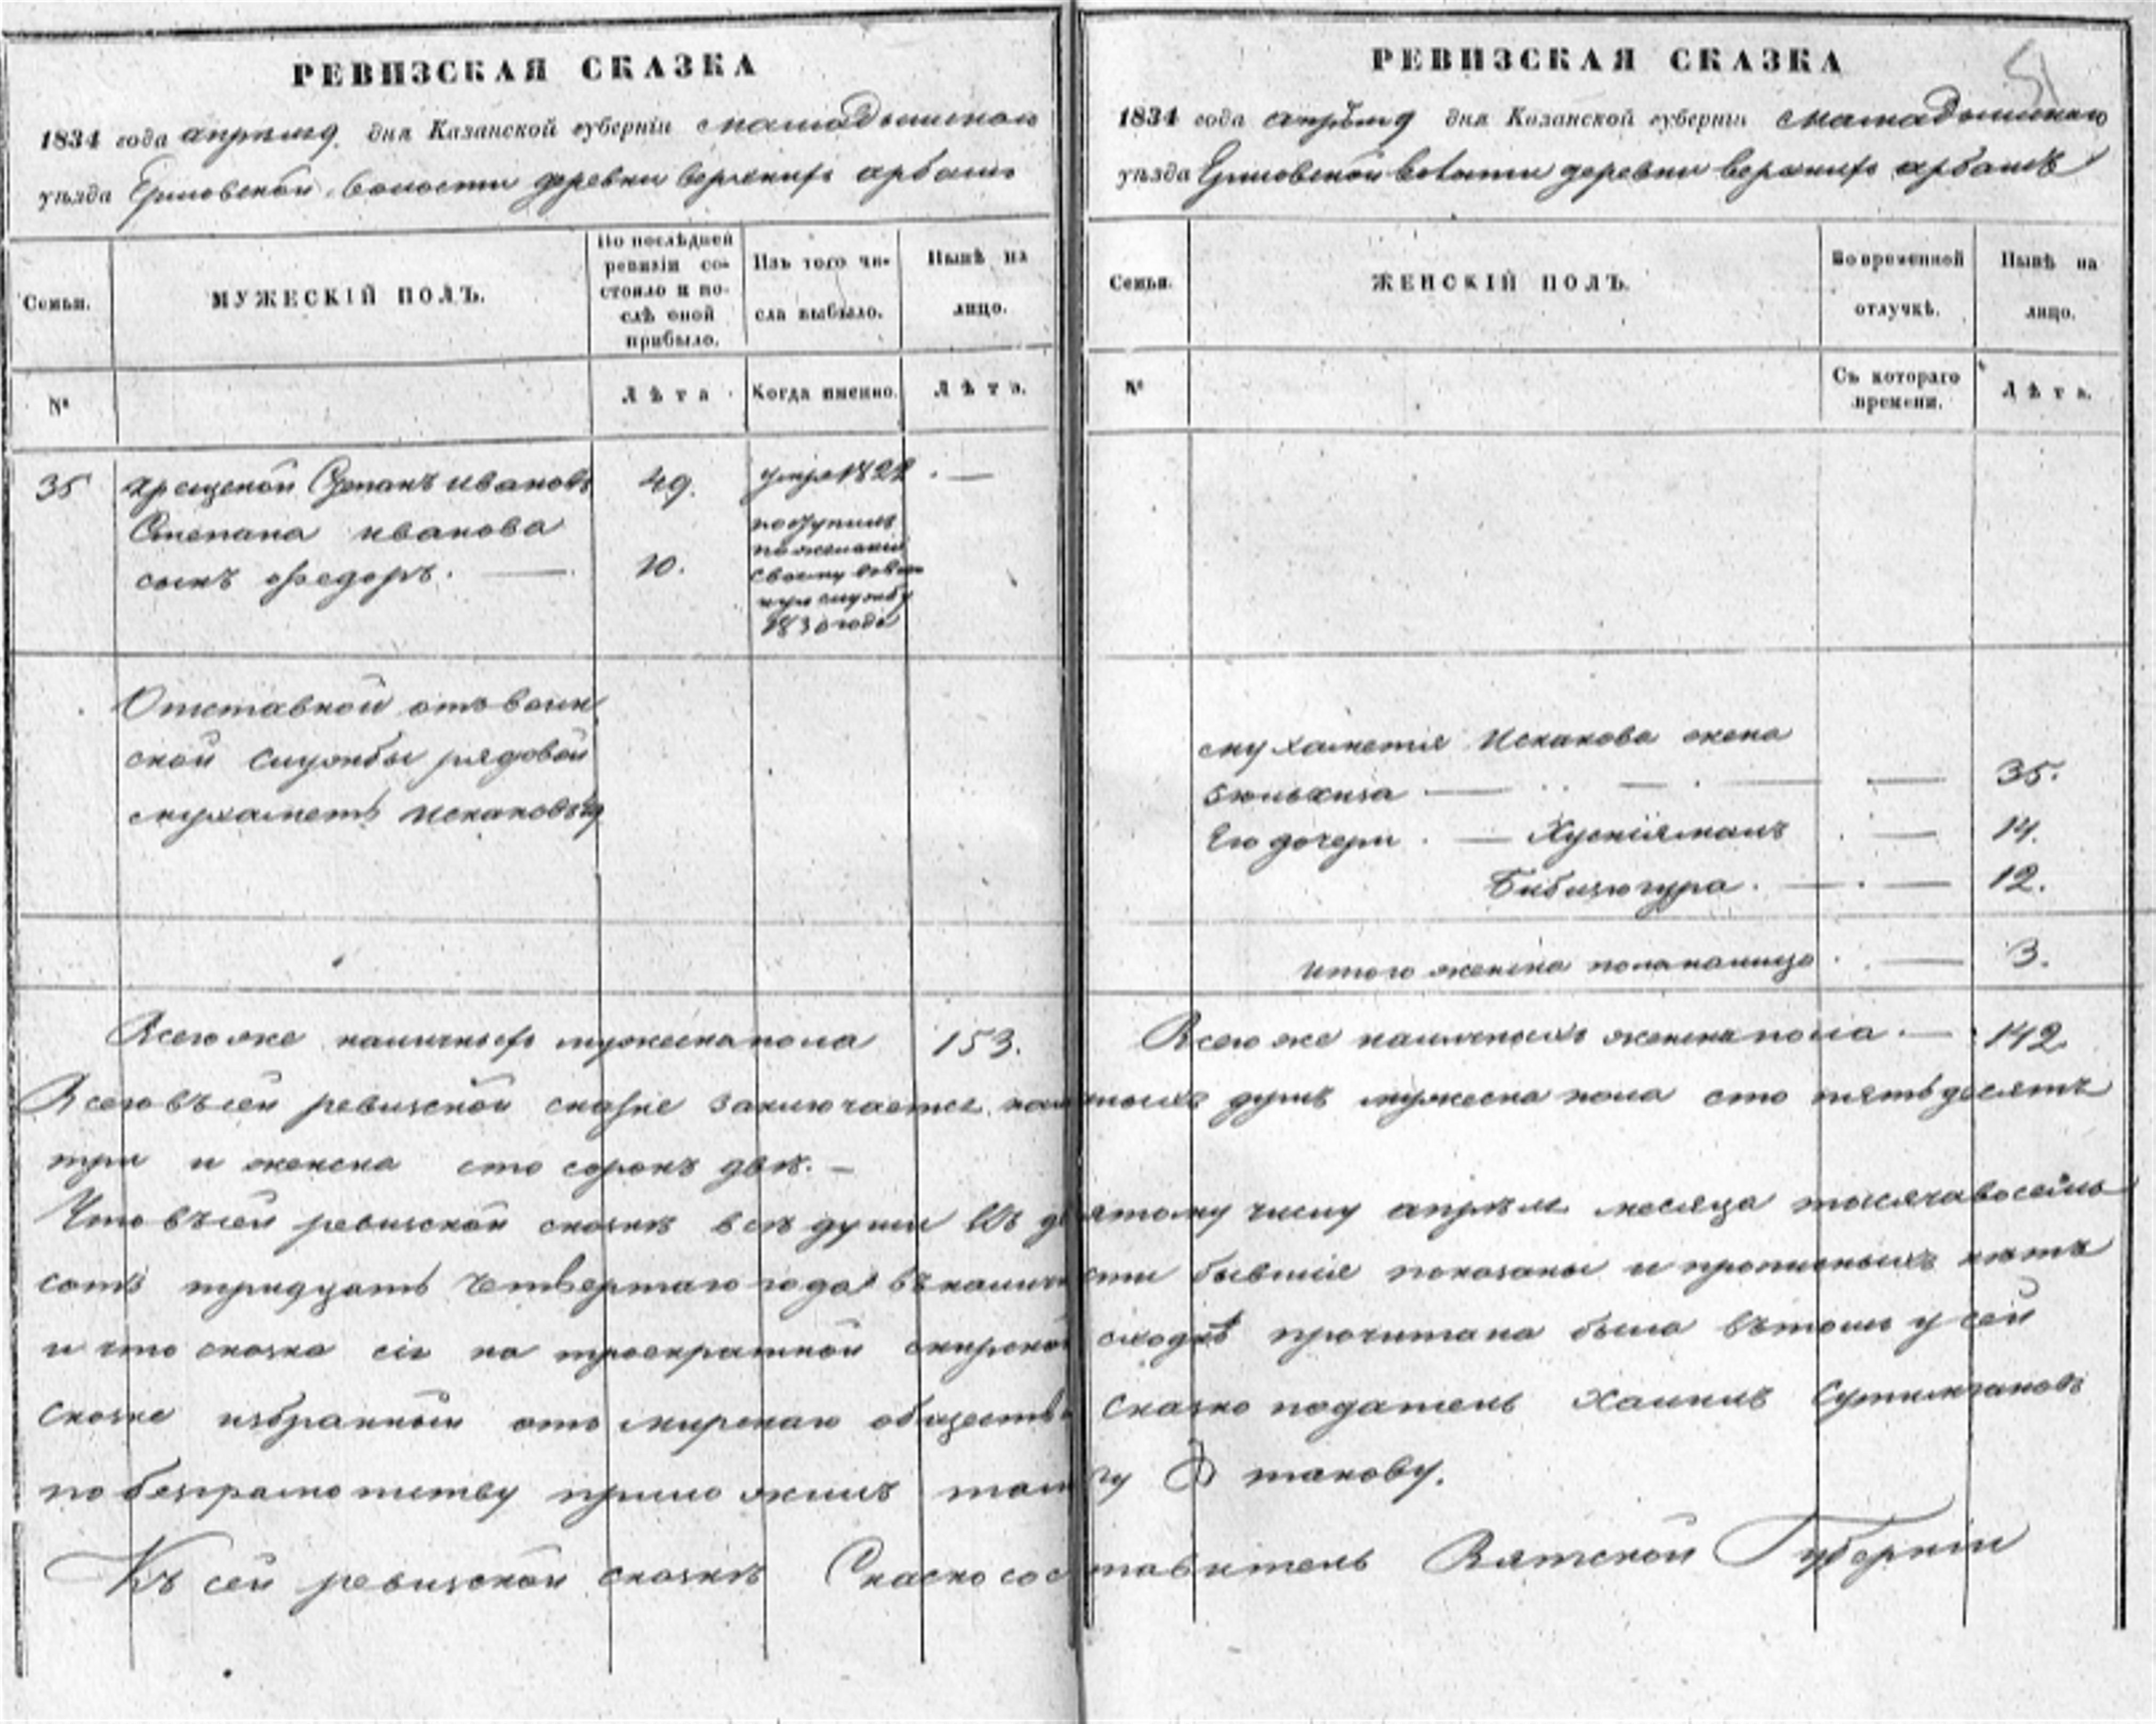 РЕВИЗСКАЯ СКАЗКА
1834 года апреля 9 дня Казанской губерніи Мамадышскаго
уѣзда волости деревни верхнихъ арбашъ
Семьи.
МУЖЕСКІЙ ПОЛЪ.
По послѣдней ревизіи со-
стояло и по-
слѣ оной
прибыло.
Изъ того чи-
сла выбыло.
Нынѣ на
лицо.
№
Лѣта
Когда именно.
Лѣта.
35 крещеной Степанъ ивановъ 49. умре 1822 —
Степана иванова
сынъ федоръ. — 10. поступилъ
по желанию
своему в воен
ную службу
1830 года
Отставной отъ воин
ской службы рядовой
мухаметъ Искаковъ
Всего же наличныхъ мужеска пола 153.
РЕВИЗСКАЯ СКАЗКА
51
1834 года апрѣля 9 дня Казанской губерніи Мамадышскаго
уѣзда волости деревни верхнихъ арбашъ
Семьи.
ЖЕНСКІЙ ПОЛЪ.
Во временной
отлучкѣ.
Нынѣ на
лицо.
№
Съ котораго
времени.
Лѣта.
мухаметя Искакова жена
— — 35.
Его дочери. — — 14.
— — 12.
итого женска пола налицо — 3.
Всего же наличныхъ женска пола. — 142
Всего въ сей ревиской сказке заключается наличныхъ душъ мужеска пола сто пятьдесятъ
три и женска сто сорокъ двѣ. —
Что въ сей ревиской сказкѣ всѣ души къ девятому числу апрѣля месяца тысяча восемь
сотъ тридцать четвертаго года въ наличности бывшие показаны и прописныхъ нѣтъ
и что сказка сія на троекратной мирской сходкѣ прочитана была въ томъ у сей
сказке избранный отъ мирскаго общества сказкоподатель Халилъ
по безграмотству приложилъ тамгу такову.
Къ сей ревиской сказкѣ Сказкосоставитель Вятской Губерніи